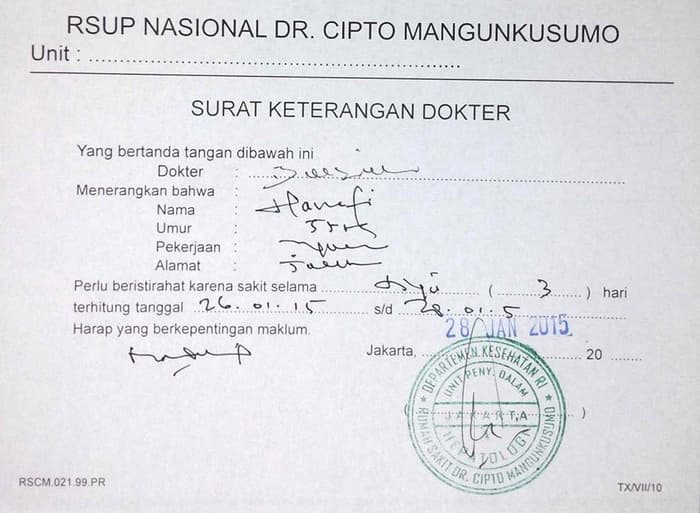 RSUP NASIONAL DR. CIPTO MANGUNKUSUMO
Unit :
SURAT KETERANGAN DOKTER
Yang bertanda tangan dibawah ini
Dokter :
Menerangkan bahwa :
Nama : Hanafi
Umur :
Pekerjaan :
Alamat :
Perlu beristirahat karena sakit selama ( 3 ) hari
terhitung tanggal 26.01.15 s/d 28.01.5
Harap yang berkepentingan maklum.
28 JAN 2015
Jakarta, 20
DEPARTEMEN KESEHATAN RI
UNIT PENY. DALAM
( JAKARTA )
HEPATOLOGI
RUMAH SAKIT DR. CIPTO MANGUNKUSUMO
RSCM.021.99.PR
TX/VII/10